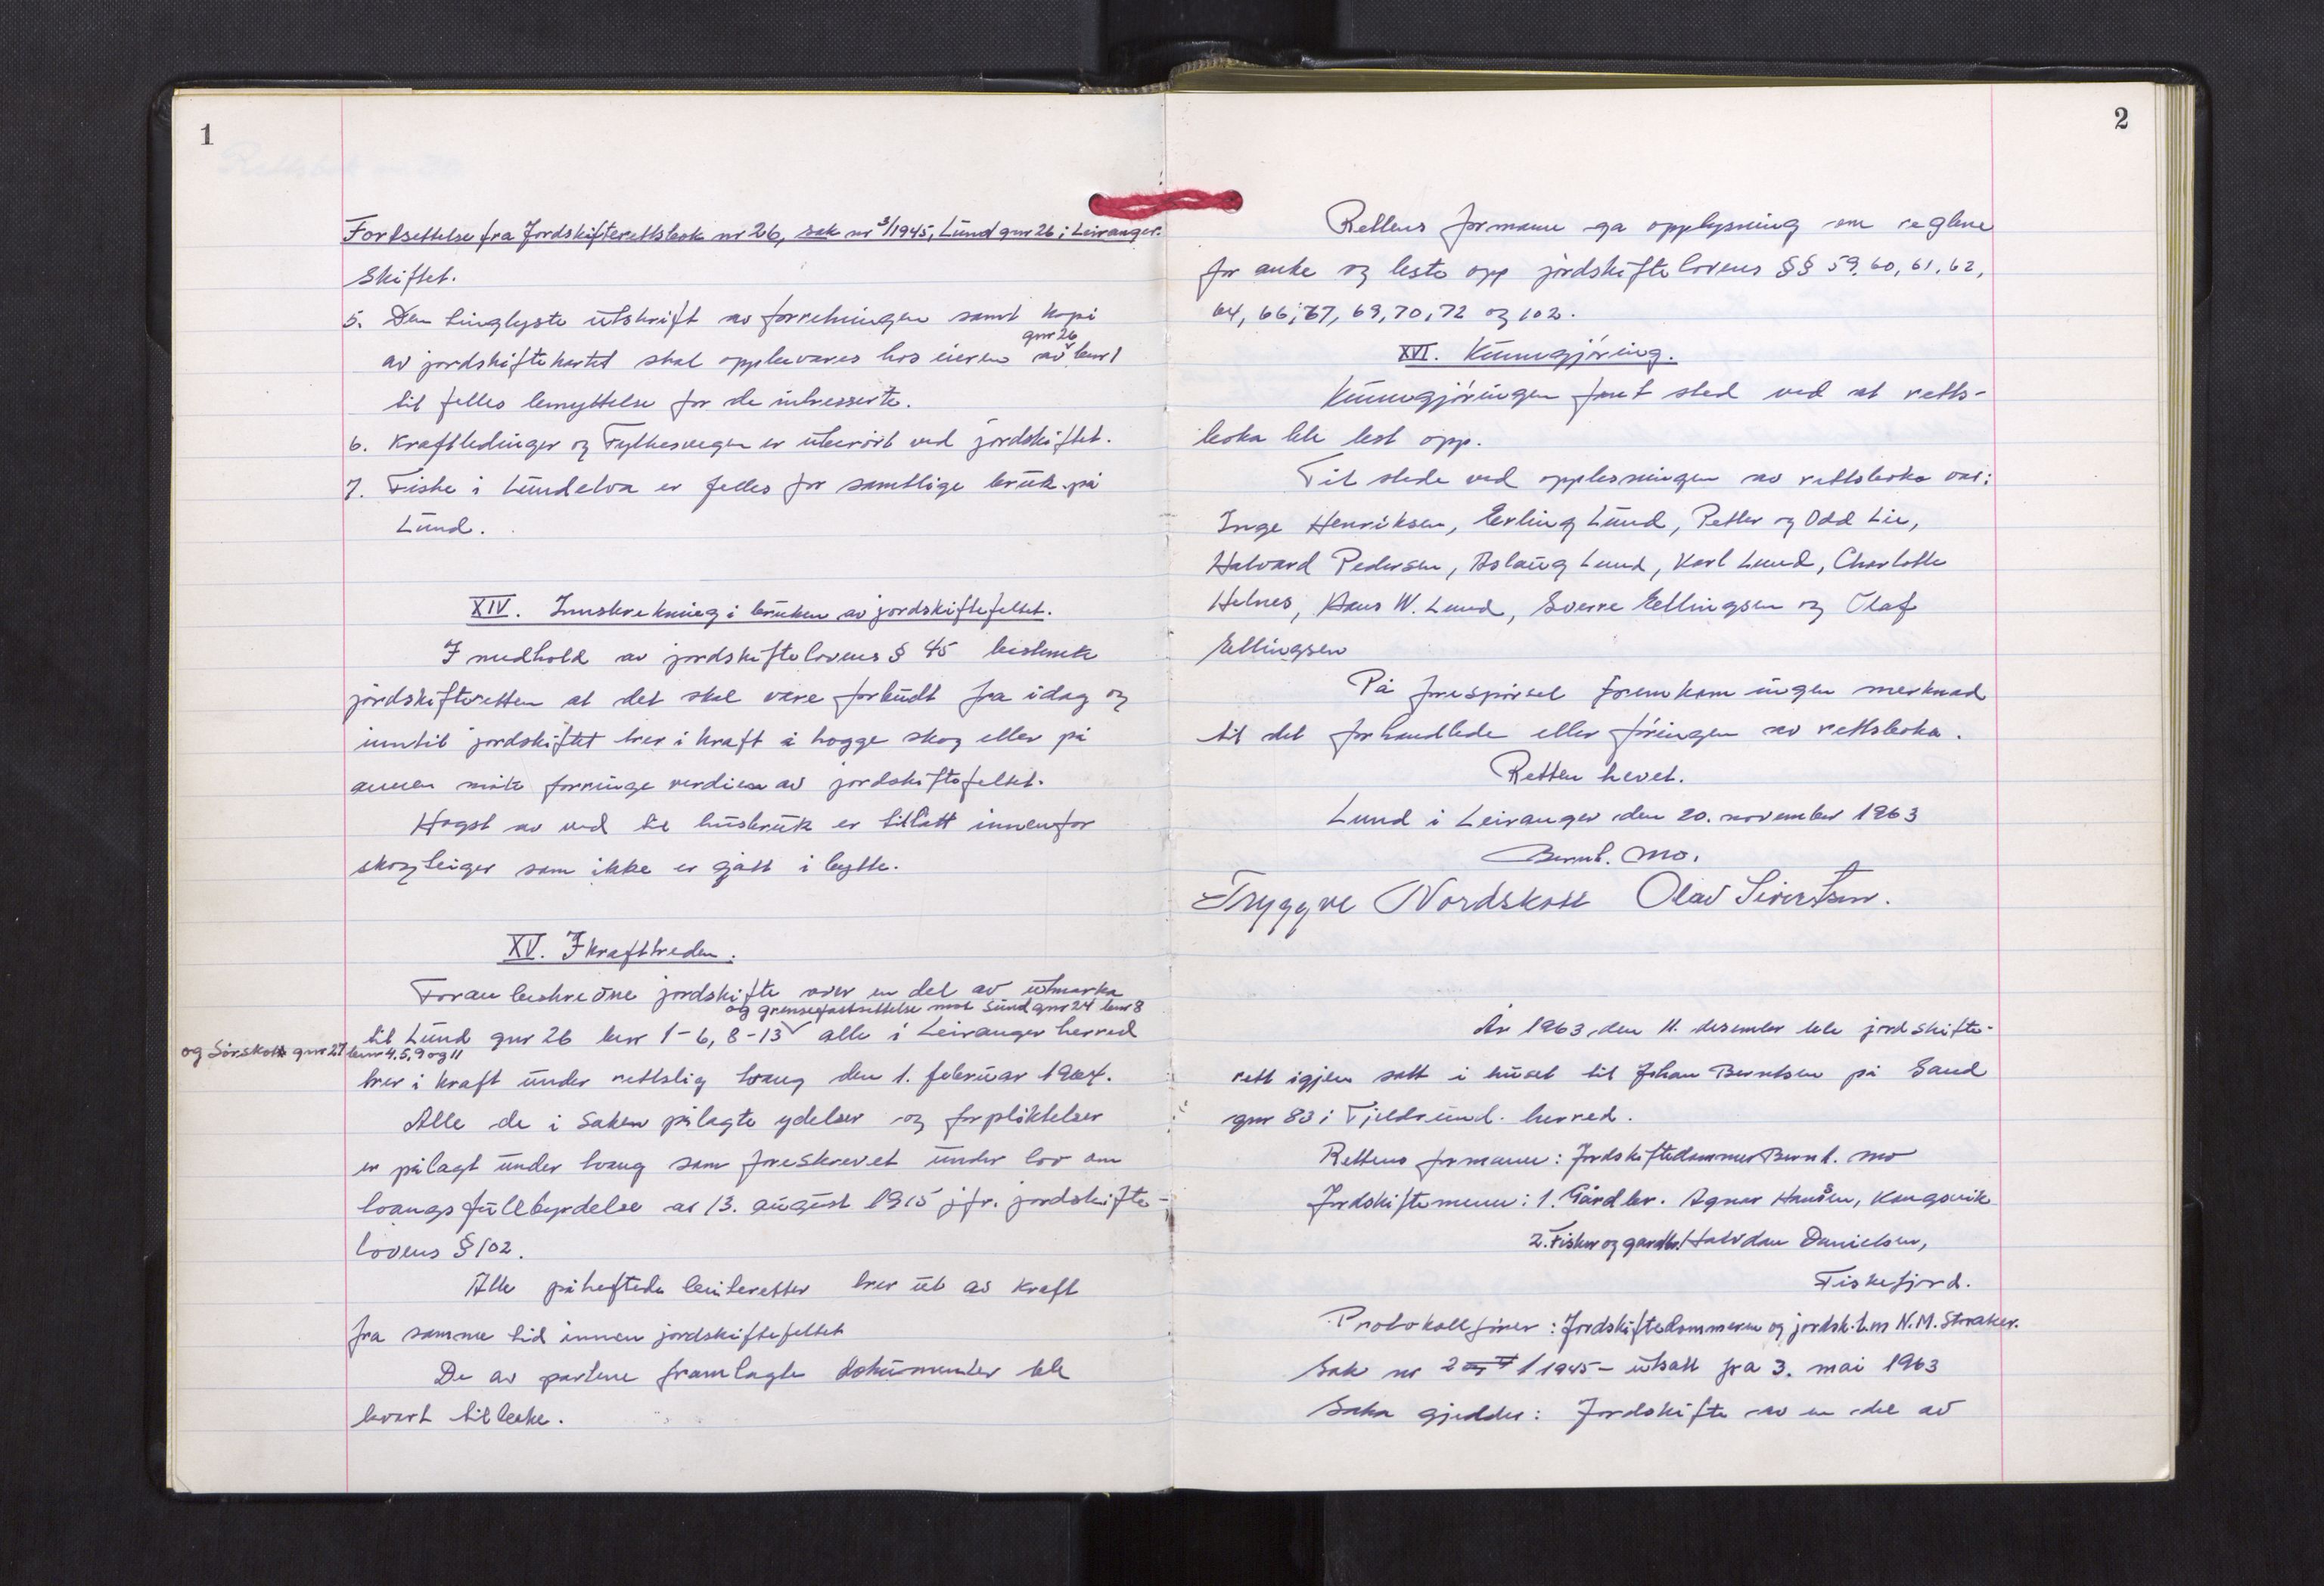 1
Fortsettelse fra Jordskifterettsbok nr 26, sak nr 3/1945, Lund gnr 26 i Leiranger.
Skiftet.
5. Den tinglyste utskrift av forretningen samt kopi
av jordskiftekartet skal oppbevares hos eieren av gnr 26 bnr 1
til felles benyttelse for de intresserte.
6. Kraftledinger og Fylkesvegen er uberört ved jordskiftet.
7. Fiske i Lundelva er felles for samtlige bruk på
Lund.
XIV. Innskrekning i bruken av jordskiftefeltet.
I medhold av jordskiftelovens § 45 bestemte
jordskifteretten at det skal være forbudt fra idag og
inntil jordskiftet trer i kraft å hogge skog eller på
annen måte forringe verdien av jordskiftefeltet.
Hogst av ved til husbruk er tillatt innenfor
skogteiger som ikke er gått i bytte.
XV. Ikrafttreden.
Foran beskrevne jordskifte over en del av utmarka
og grensefastsettelse mot Sund gnr 24 bnr 8
til Lund gnr 26 bnr 1-6, 8-13 alle i Leiranger herred
og Sörskott gnr 27 bnr 4, 5, 9 og 11
trer i kraft under rettslig tvang den 1. februar 1964.
Alle de i saken pålagte ydelser og forpliktelser
er pålagt under tvang som foreskrevet under lov om
tvangsfullbyrdelse av 13. august 1915 jfr. jordskifte-
lovens § 102.
Alle påheftede leiteretter trer ut av kraft
fra samme tid innen jordskiftefeltet
De av partene framlagte dokumenter ble
levert tilbake.
2
Rettens formann ga opplysning om reglene
for anke og leste opp jordskiftelovens §§ 59, 60, 61, 62,
64, 66, 67, 69, 70, 72 og 102.
XVI. Kunngjöring.
Kunngjöringen fant sted ved at retts-
boka ble lest opp.
Til stede ved opplesningen av rettsboka var:
Inge Henriksen, Erling Lund, Petter og Odd Lie,
Halvard Pedersen, Aslaug Lund, Karl Lund, Charlotte
Helnes, Hans W. Lund, Sverre Ellingsen og Olaf
Ellingsen
På forespörsel fremkom ingen merknad
til det forhandlede eller föringen av rettsboka.
Retten hevet.
Lund i Leiranger den 20. november 1963
Bernh. Mo.
Tryggve Nordskott Olav Sivertsen.
År 1963, den 11. desember ble jordskifte-
rett igjen satt i huset til Johan Berntsen på Sand
gnr 83 i Tjeldsund herred.
Rettens formann: Jordskiftedommer Bernh. Mo
Jordskiftemenn: 1. Gårdbr. Agnar Hansen, Kongsvik
2. Fisker og gardbr. Halvdan Danielsen,
Fiskefjord.
Protokollförer: Jordskiftedommeren og jordsk.k.m N.M. Straker.
Sak nr 2 /1945 - utsatt fra 3. mai 1963
Saka gjelder: Jordskifte av en del av